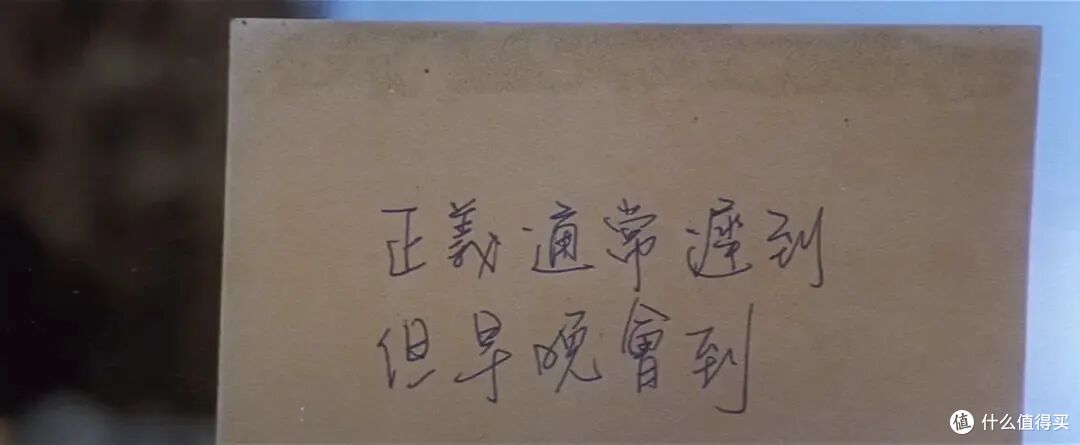 正義通常遲到
但早晚會到
值 什么值得买